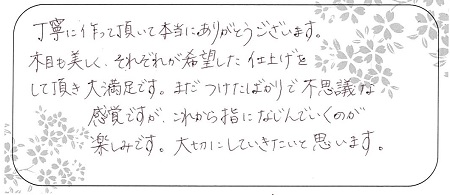 丁寧に作って頂いて本当にありがとうございます。
木目も美しく、それぞれが希望した仕上げを
して頂き大満足です。まだつけたばかりで不思議な
感覚ですが、これから指になじんでいくのが
楽しみです。大切にしていきたいと思います。